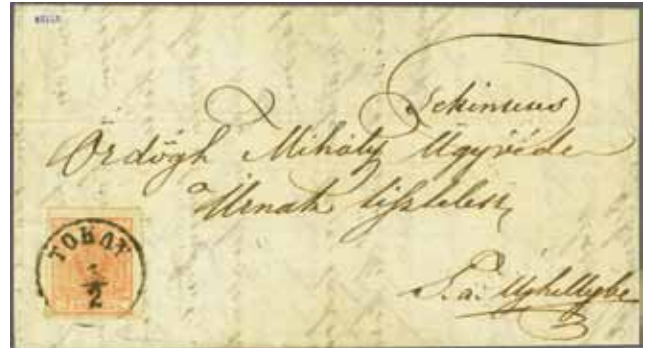 Tekintetes
Ördögh Mihály Ügyvéde
Úrnak tisztelettel
S. a. Ujhellybe
TOKAY
2